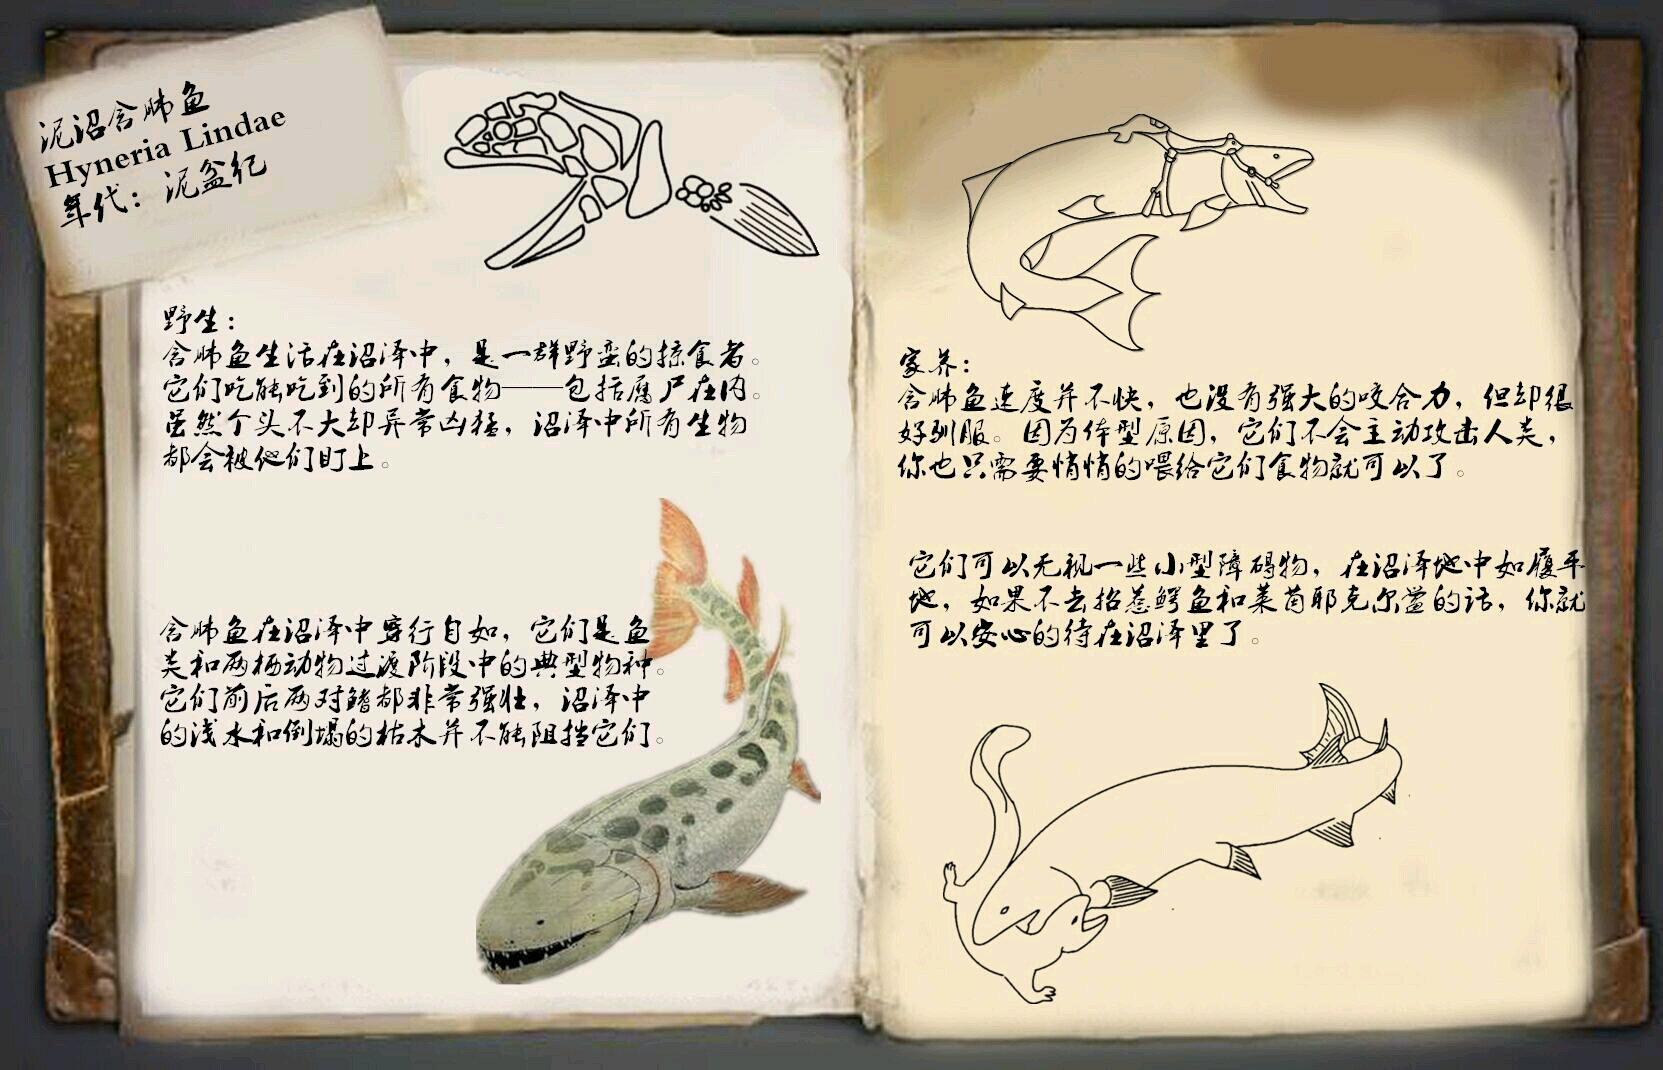 泥沼含肺鱼
Hyneria Lindae
年代：泥盆纪
野生：
含肺鱼生活在沼泽中，是一群野蛮的掠食者。
它们吃能吃到的所有食物——包括腐尸在内。
虽然个头不大却异常凶猛，沼泽中所有生物
都会被他们盯上。
含肺鱼在沼泽中穿行自如，它们是鱼
类和两栖动物过渡阶段中的典型物种。
它们前后两对鳍都非常强壮，沼泽中
的浅水和倒塌的枯木并不能阻挡它们。
家养：
含肺鱼速度并不快，也没有强大的咬合力，但却很
好驯服。因为体型原因，它们不会主动攻击人类，
你也只需要悄悄的喂给它们食物就可以了。
它们可以无视一些小型障碍物，在沼泽地中如履平
地，如果不去招惹鳄鱼和莱茵耶克尔鲎的话，你就
可以安心的待在沼泽里了。